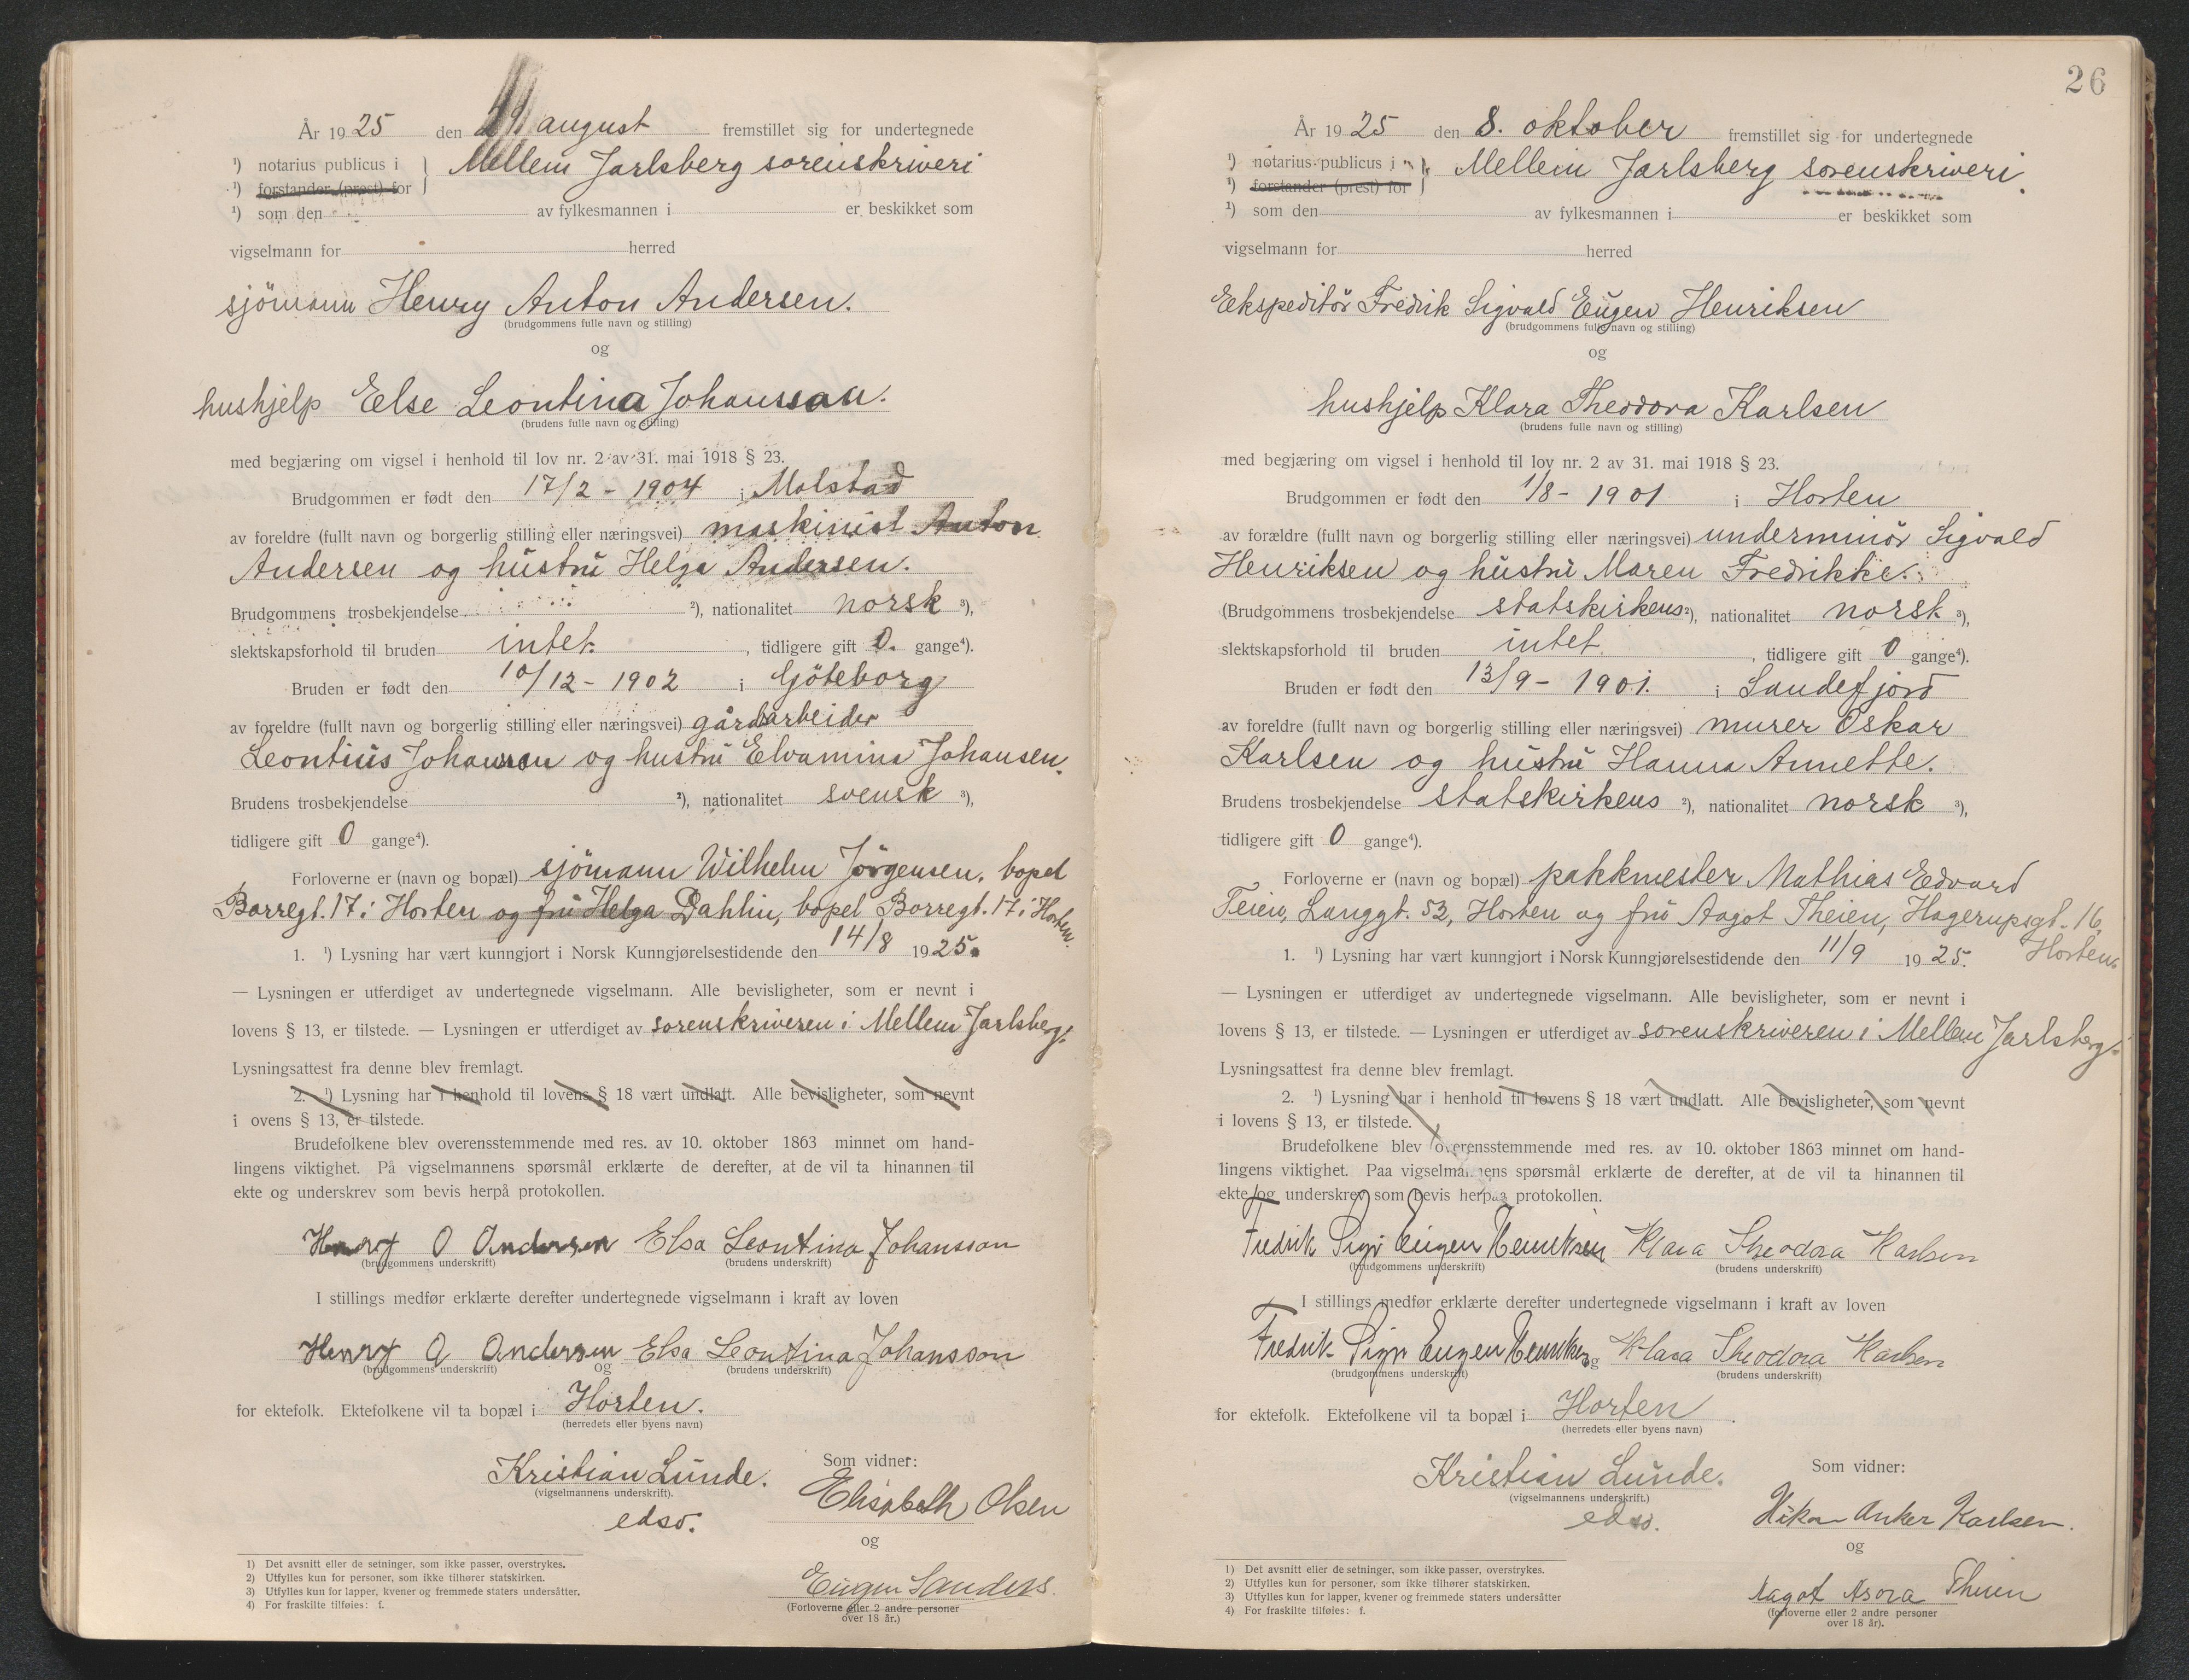 År 1925 den 29. august fremstillet sig for undertegnede
¹) notarius publicus i } Mellem Jarlsberg sorenskriveri
¹) forstander (prest) for
¹) som den av fylkesmannen i er beskikket som
vigselmann for herred
sjömann Henry Anton Andersen.
(brudgommens fulle navn og stilling)
og
hushjelp Else Leontina Johansson.
(brudens fulle navn og stilling)
med begjæring om vigsel i henhold til lov nr. 2 av 31. mai 1918 § 23.
Brudgommen er født den 17/2 - 1904 i Molstad
av foreldre (fullt navn og borgerlig stilling eller næringsvei) maskinist Anton
Andersen og hustru Helga Andersen.
Brudgommens trosbekjendelse ²), nationalitet norsk ³),
slektskapsforhold til bruden intet. , tidligere gift 0. gange⁴).
Bruden er født den 10/12 - 1902 i Göteborg
av foreldre (fullt navn og borgerlig stilling eller næringsvei) gårdarbeider
Leontius Johansson og hustru Elvamina Johansen.
Brudens trosbekjendelse ²), nationalitet svensk ³),
tidligere gift 0 gange⁴).
Forloverne er (navn og bopæl) sjömann Wilhelm Jörgensen, bopel
Borregt. 17 i Horten og fru Helga Dahlin, bopel Borregt. 17 i Horten.
1. ¹) Lysning har vært kunngjort i Norsk Kunngjørelsestidende den 14/8 1925.
— Lysningen er utferdiget av undertegnede vigselmann. Alle bevisligheter, som er nevnt i
lovens § 13, er tilstede. — Lysningen er utferdiget av sorenskriveren i Mellem Jarlsberg.
Lysningsattest fra denne blev fremlagt.
2. ¹) Lysning har i henhold til lovens § 18 vært undlatt. Alle bevisligheter, som nevnt
i ovens § 13, er tilstede.
Brudefolkene blev overensstemmende med res. av 10. oktober 1863 minnet om hand-
lingens viktighet. På vigselmannens spørsmål erklærte de derefter, at de vil ta hinannen til
ekte og underskrev som bevis herpå protokollen.
Henry O Andersen Elsa Leontina Johansson
(brudgommens underskrift) (brudens underskrift)
I stillings medfør erklærte derefter undertegnede vigselmann i kraft av loven
Henry A Andersen Elsa Leontina Johansson
(brudgommens underskrift) og (brudens underskrift)
for ektefolk. Ektefolkene vil ta bopæl i Horten.
(herredets eller byens navn)
Kristian Lunde. Som vidner:
(vigselmannens underskrift).
edsv. Elisabeth Olsen
og
Eugen Sanders
(Forloverne eller 2 andre personer
over 18 år.)
1) Det avsnitt eller de setninger, som ikke passer, overstrykes.
2) Utfylles kun for personer, som ikke tilhører statskirken.
3) Utfylles kun for lapper, kvener og fremmede staters undersåtter.
4) For fraskilte tilføies: f.
26
År 1925 den 8. oktober fremstillet sig for undertegnede
¹) notarius publicus i } Mellem Jarlsberg sorenskriveri.
¹) forstander (prest) for
¹) som den av fylkesmannen i er beskikket som
vigselmann for herred
Ekspeditör Fredrik Sigvald Eugen Henriksen
(brudgommens fulle navn og stilling)
og
hushjelp Klara Theodora Karlsen
(brudens fulle navn og stilling)
med begjæring om vigsel i henhold til lov nr. 2 av 31. mai 1918 § 23.
Brudgommen er født den 1/8 - 1901 i Horten
av forældre (fullt navn og borgerlig stilling eller næringsvei) underminör Sigvald
Henriksen og hustru Maren Fredrikke.
(Brudgommens trosbekjendelse statskirkens ²), nationalitet norsk ³),
slektskapsforhold til bruden intet. , tidligere gift 0 gange⁴).
Bruden er født den 13/9 - 1901. i Sandefjord
av foreldre (fullt navn og borgerlig stilling eller næringsvei) murer Oskar
Karlsen og hustru Hanna Annette.
Brudens trosbekjendelse statskirkens ²), nationalitet norsk ³),
tidligere gift 0 gange⁴).
Forloverne er (navn og bopæl) pakkmester Mathias Edvard
Teien, Langgt. 53, Horten og fru Aagot Theien, Hagerupsgt. 16,
Horten.
1. ¹) Lysning har vært kunngjort i Norsk Kunngjørelsestidende den 11/9 1925.
— Lysningen er utferdiget av undertegnede vigselmann. Alle bevisligheter, som er nevnt i
lovens § 13, er tilstede. — Lysningen er utferdiget av sorenskriveren i Mellem Jarlsberg.
Lysningsattest fra denne blev fremlagt.
2. ¹) Lysning har i henhold til lovens § 18 vært undlatt. Alle bevisligheter, som nevnt
i lovens § 13, er tilstede.
Brudefolkene blev overensstemmende med res. av 10. oktober 1863 minnet om hand-
lingens viktighet. Paa vigselmannens spørsmål erklærte de derefter, at de vil ta hinannen til
ekte og underskrev som bevis herpaa protokollen.
Fredrik Sigv Eugen Henriksen Klara Theodora Karlsen
(brudgommens underskrift) (brudens underskrift)
I stillings medfør erklærte derefter undertegnede vigselmann i kraft av loven
Fredrik Sigv Eugen Henriksen og Klara Theodora Karlsen
(brudgommens underskrift) (brudens underskrift)
for ektefolk. Ektefolkene vil ta bopæl i Horten.
(herredets eller byens navn)
Kristian Lunde. Som vidner:
(vigselmannens underskrift.)
edsv. Håkon Anker Karlsen.
og
Aagot Asora Theien
(forloverne eller 2 andre personer
over 18 år).
1) Det avsnitt eller de setninger, som ikke passer, overstrykes.
2) Utfylles kun for personer, som ikke tilhører statskirken.
3) Utfylles kun for lapper, kvener og fremmede staters undersåtter
4) For fraskilte tilføies: f.